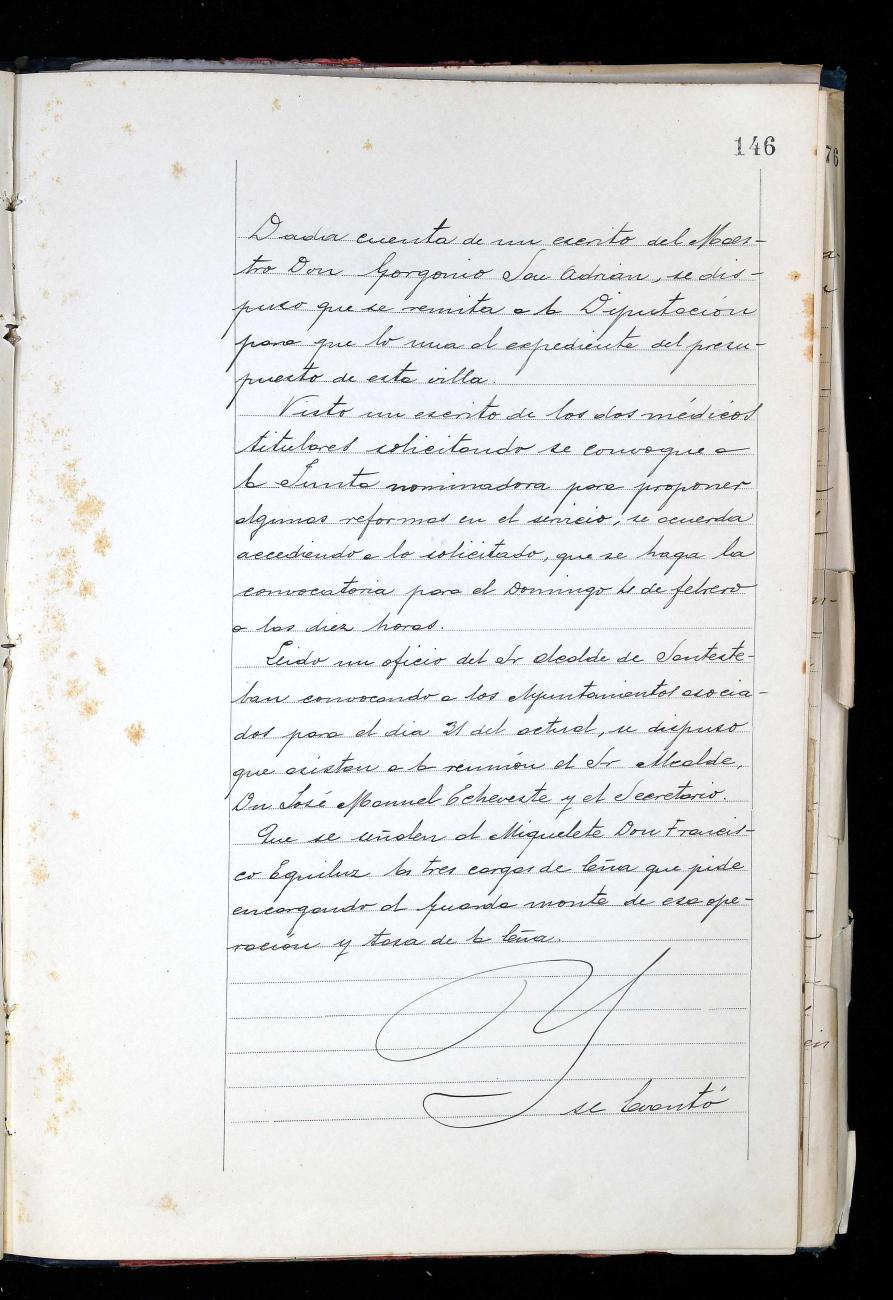 146
76
Dada cuenta de un escrito del Maes-
tro Don Gorgonio San Adrian, se dis-
puso que se remita a la Diputación
para que lo una al expediente del presu-
puesto de esta villa.
Visto un escrito de los dos médicos
titulares solicitando se convoque a
la Junta nominadora para proponer
algunas reformas en el servicio, se acuerda
accediendo a lo solicitado, que se haga la
convocatoria para el Domingo 4 de febrero
a las diez horas.
Leido un oficio del Sr Alcalde de Santeste-
ban convocando a los Ayuntamientos asocia-
dos para el dia 31 del actual, se dispuso
que asistan a la reunión el Sr Alcalde,
Dn José Manuel Echeveste y el Secretario.
Que se señalen al Miquelete Don Francis-
co Eguiluz las tres cargas de leña que pide
encargando al Guarda monte de esa ope-
ración y tasa de la leña.
Y
se levantó